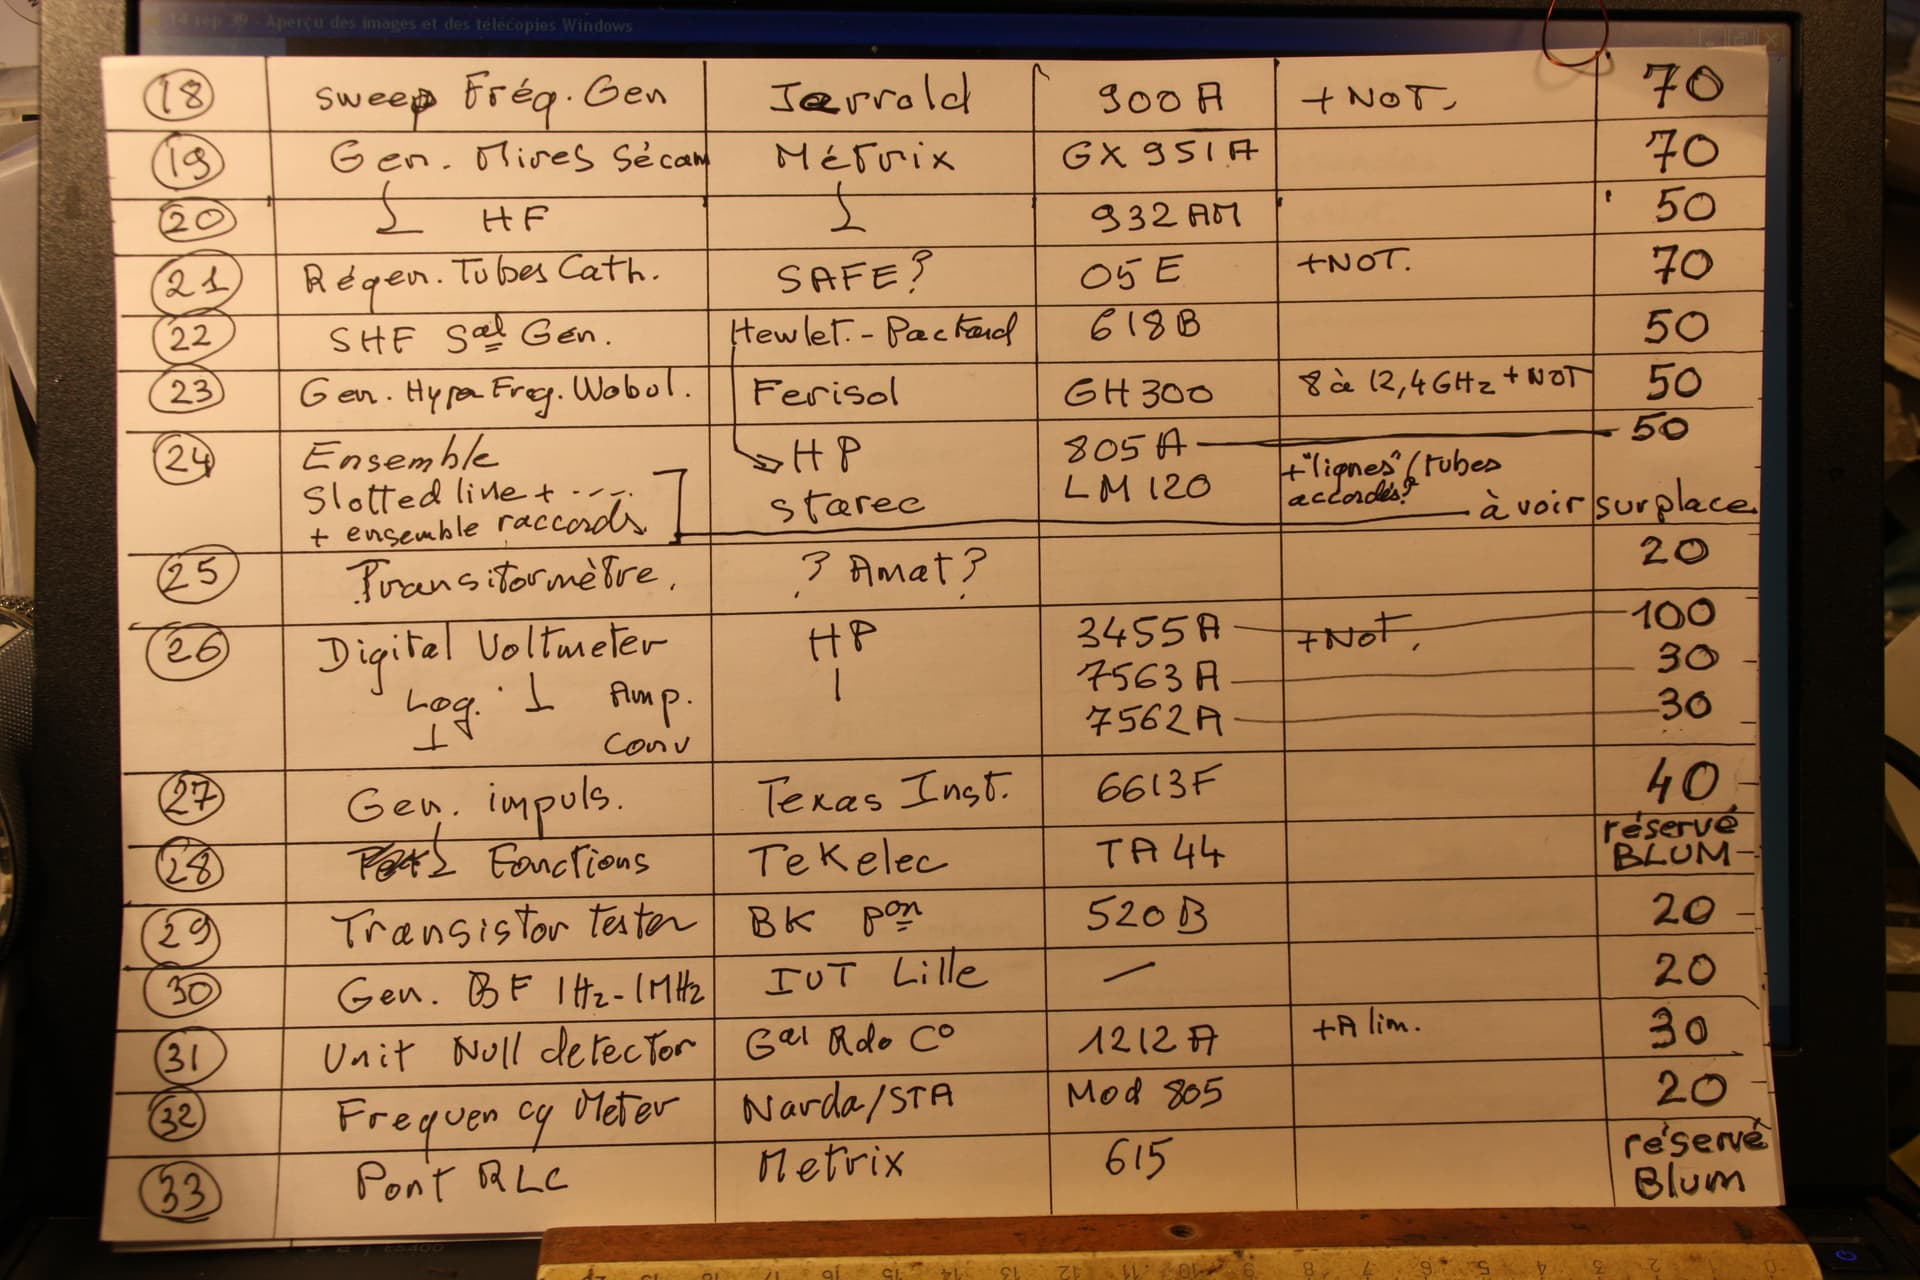 14 rep 39 - Aperçu des images et des télécopies Windows
18 sweep Fréq. Gen Jerrold 900 A + NOT. 70
19 Gen. Mires Sécam Métrix GX 951 A 70
20 HF 932 AM 50
21 Régen. Tubes Cath. SAFE? 05 E +NOT. 70
22 SHF Sal Gen. Hewlet.-Packard 618 B 50
23 Gen. Hyper Freq. Wobul. Ferisol GH 300 8 à 12,4 GHz + NOT 50
24 Ensemble HP 805 A 50
Slotted line + .... starec LM 120 + "lignes"/tubes accordés?
+ ensemble raccords à voir sur place
25 Transitormètre. ? Amat? 20
26 Digital Voltmeter HP 3455 A +NOT. 100
Log. Amp. 7563 A 30
Conv 7562 A 30
27 Gen. impuls. Texas Inst. 6613F 40
28 Fonctions TeKelec TA 44 réservé BLUM
29 Transistor tester BK Pon 520 B 20
30 Gen. BF 1Hz-1MHz IUT Lille — 20
31 Unit Null detector Gal Rdo Co 1212 A +Alim. 30
32 Frequency Meter Narda/STA Mod 805 20
33 Pont RLC Metrix 615 réservé Blum